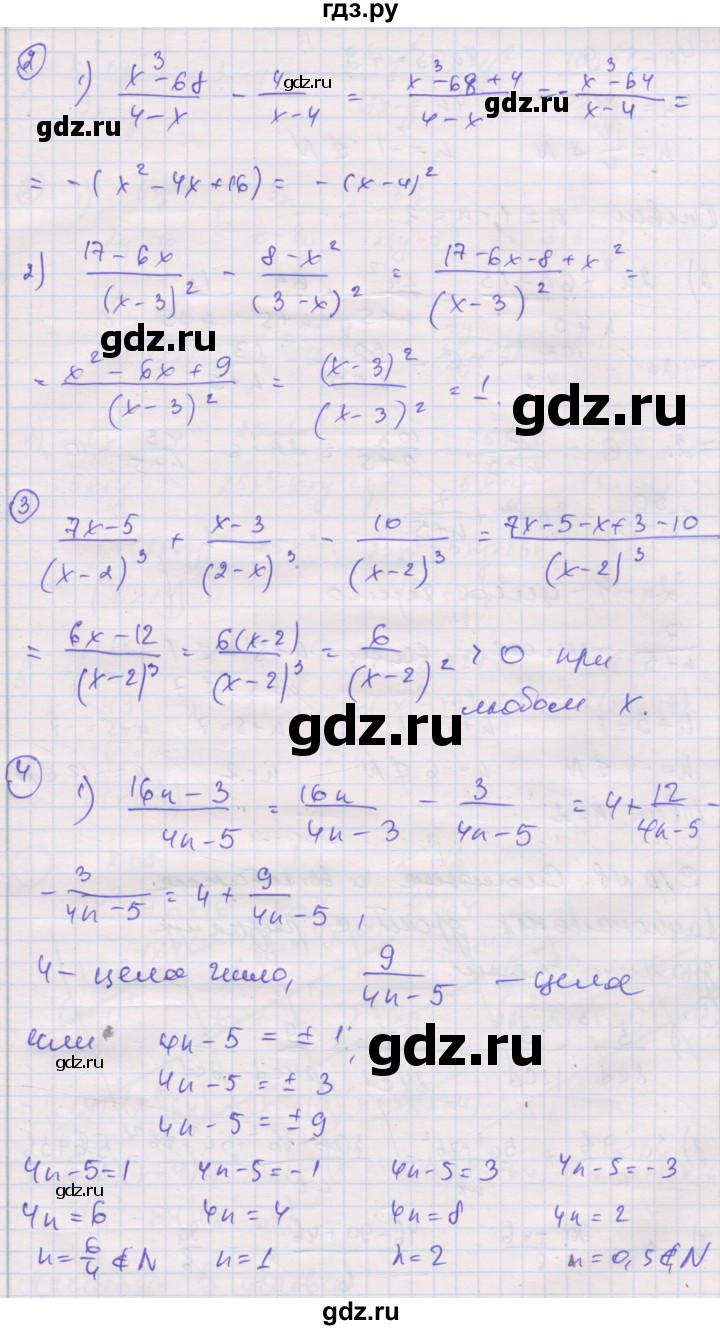 гдз.ру
② 1) (x³-68)/(4-x) - 4/(x-4) = (x³-68+4)/(4-x) = -(x³-64)/(x-4) =
gdz.ru
gdz.ru
gdz.ru
= -(x²-4x+16) = -(x-4)²
2) (17-6x)/(x-3)² - (8-x²)/(3-x)² = (17-6x-8+x²)/(x-3)² =
gdz.ru
= (x²-6x+9)/(x-3)² = (x-3)²/(x-3)² = 1.
gdz.ru
③ (7x-5)/(x-2)³ + (x-3)/(2-x)³ - 10/(x-2)³ = (7x-5-x+3-10)/(x-2)³
= (6x-12)/(x-2)³ = 6(x-2)/(x-2)³ = 6/(x-2)² > 0 при
любом x.
gdz.ru
④ 1) (16n-3)/(4n-5) = 16n/(4n-3) - 3/(4n-5) = 4+12/(4n-5) -
- 3/(4n-5) = 4 + 9/(4n-5),
4 - целое число, 9/(4n-5) - целое
если 4n-5 = ±1;
gdz.ru
gdz.ru
4n-5 = ±3
4n-5 = ±9
4n-5=1 4n-5=-1 4n-5=3 4n-5=-3
gdz.ru
4n=6 4n=4 4n=8 4n=2
n=6/4∉N n=1 n=2 n=0,5∉N
gdz.ru
gdz.ru